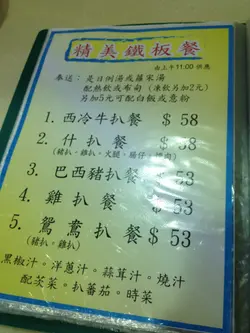 精美鐵板餐
由上午11:00 供應
奉送：是日例湯或羅宋湯
配熱飲或布甸（凍飲另加2元）
另加5元可配白飯或意粉
1. 西冷牛扒餐 $ 58
2. 什扒餐 $ 58
(豬扒、雞扒、火腿、腸仔、燒肉)
3. 巴西豬扒餐 $ 53
4. 雞扒餐 $ 53
5. 鴛鴦扒餐 $ 53
(豬扒、雞扒)
黑椒汁。洋蔥汁。蒜茸汁。燒汁
配茨菜。扒蕃茄。時菜